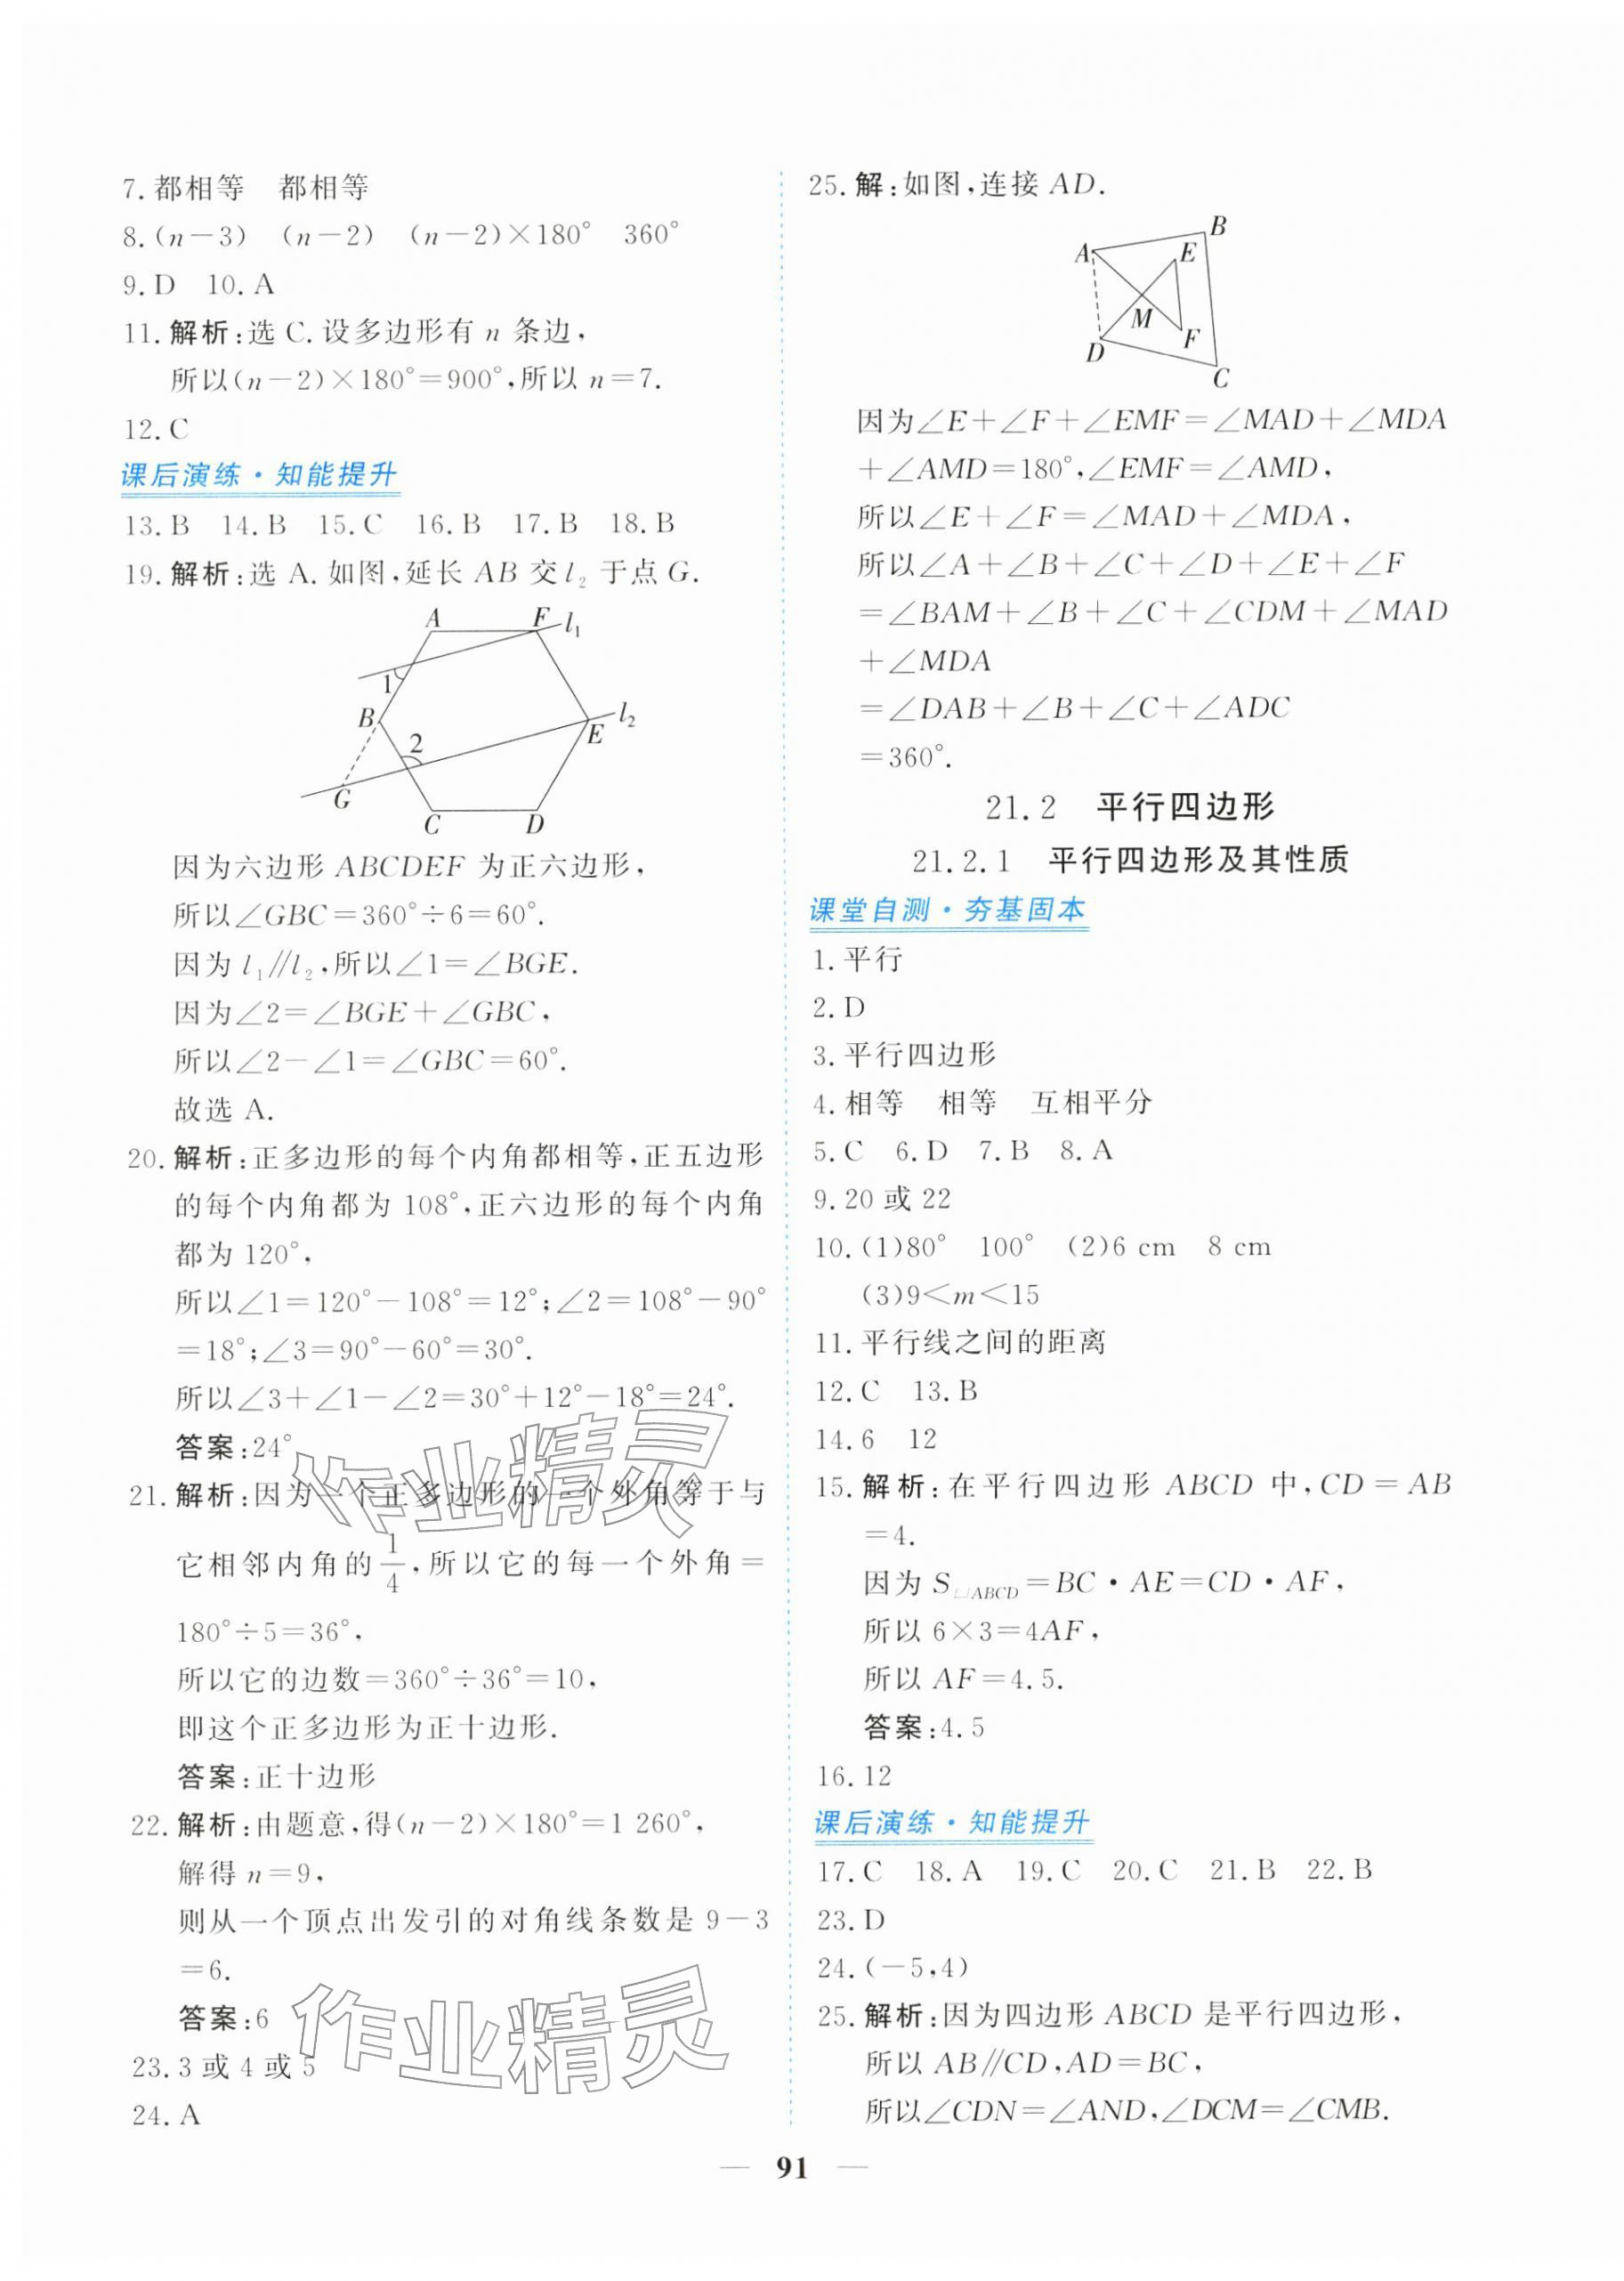 7.都相等　都相等
8.(n－3)　(n－2)　(n－2)×180°　360°
9.D　10.A
11.解析:选 C.设多边形有 n 条边,
所以(n－2)×180°＝900°,所以 n＝7.
12.C
课后演练·知能提升
13.B　14.B　15.C　16.B　17.B　18.B
19.解析:选 A.如图,延长 AB 交 l₂ 于点 G.
A F l₁
1
B l₂
2 E
G
C D
因为六边形 ABCDEF 为正六边形,
所以∠GBC＝360°÷6＝60°.
因为 l₁∥l₂,所以∠1＝∠BGE.
因为∠2＝∠BGE＋∠GBC,
所以∠2－∠1＝∠GBC＝60°.
故选 A.
20.解析:正多边形的每个内角都相等,正五边形
的每个内角都为 108°,正六边形的每个内角
都为 120°,
所以∠1＝120°－108°＝12°;∠2＝108°－90°
＝18°;∠3＝90°－60°＝30°.
所以∠3＋∠1－∠2＝30°＋12°－18°＝24°.
答案:24°
21.解析:因为一个正多边形的一个外角等于与
它相邻内角的 1/4,所以它的每一个外角＝
180°÷5＝36°,
所以它的边数＝360°÷36°＝10,
即这个正多边形为正十边形.
答案:正十边形
22.解析:由题意,得(n－2)×180°＝1 260°,
解得 n＝9,
则从一个顶点出发引的对角线条数是 9－3
＝6.
答案:6
23.3 或 4 或 5
24.A
作业精灵
作业精灵
25.解:如图,连接 AD.
B
A E
M
D F
C
因为∠E＋∠F＋∠EMF＝∠MAD＋∠MDA
＋∠AMD＝180°,∠EMF＝∠AMD,
所以∠E＋∠F＝∠MAD＋∠MDA,
所以∠A＋∠B＋∠C＋∠D＋∠E＋∠F
＝∠BAM＋∠B＋∠C＋∠CDM＋∠MAD
＋∠MDA
＝∠DAB＋∠B＋∠C＋∠ADC
＝360°.
21.2　平行四边形
21.2.1　平行四边形及其性质
课堂自测·夯基固本
1.平行
2.D
3.平行四边形
4.相等　相等　互相平分
5.C　6.D　7.B　8.A
9.20 或 22
10.(1)80°　100°　(2)6 cm　8 cm
(3)9＜m＜15
11.平行线之间的距离
12.C　13.B
14.6　12
15.解析:在平行四边形 ABCD 中,CD＝AB
＝4.
因为 S▱ABCD＝BC·AE＝CD·AF,
所以 6×3＝4AF,
所以 AF＝4.5.
答案:4.5
16.12
课后演练·知能提升
17.C　18.A　19.C　20.C　21.B　22.B
23.D
24.(－5,4)
25.解析:因为四边形 ABCD 是平行四边形,
所以 AB∥CD,AD＝BC,
所以∠CDN＝∠AND,∠DCM＝∠CMB.
— 91 —